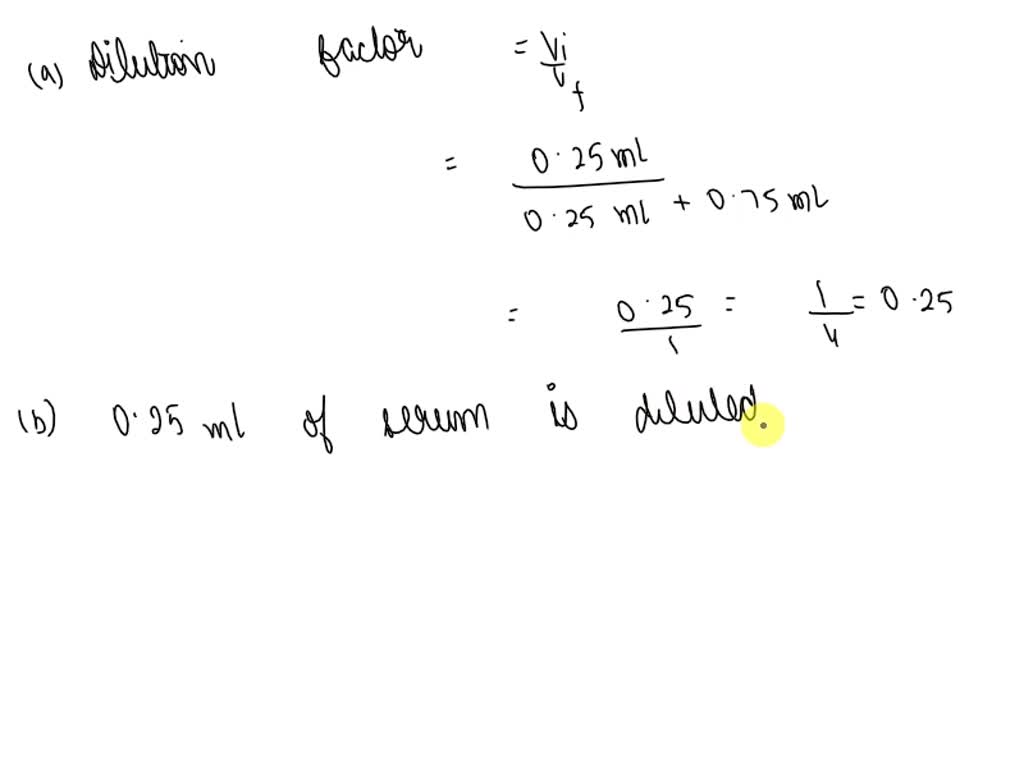 (a) Dilution factor = Vi/Vf
= 0.25 ml / 0.25 ml + 0.75 ml
= 0.25/1 = 1/4 = 0.25
(b) 0.25 ml of serum is diluted.